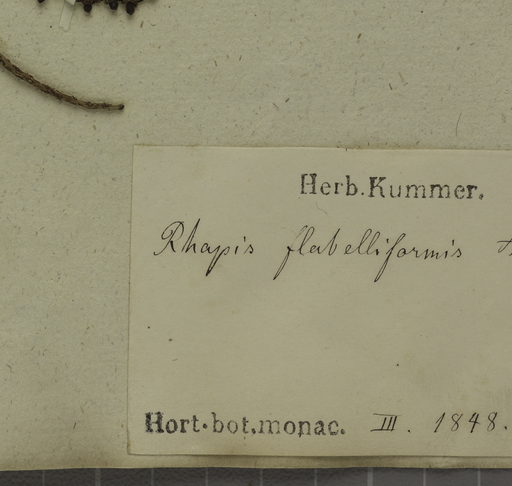 Herb.Kummer.
Rhapis flabelliformis
Hort.bot.monac. III. 1848.